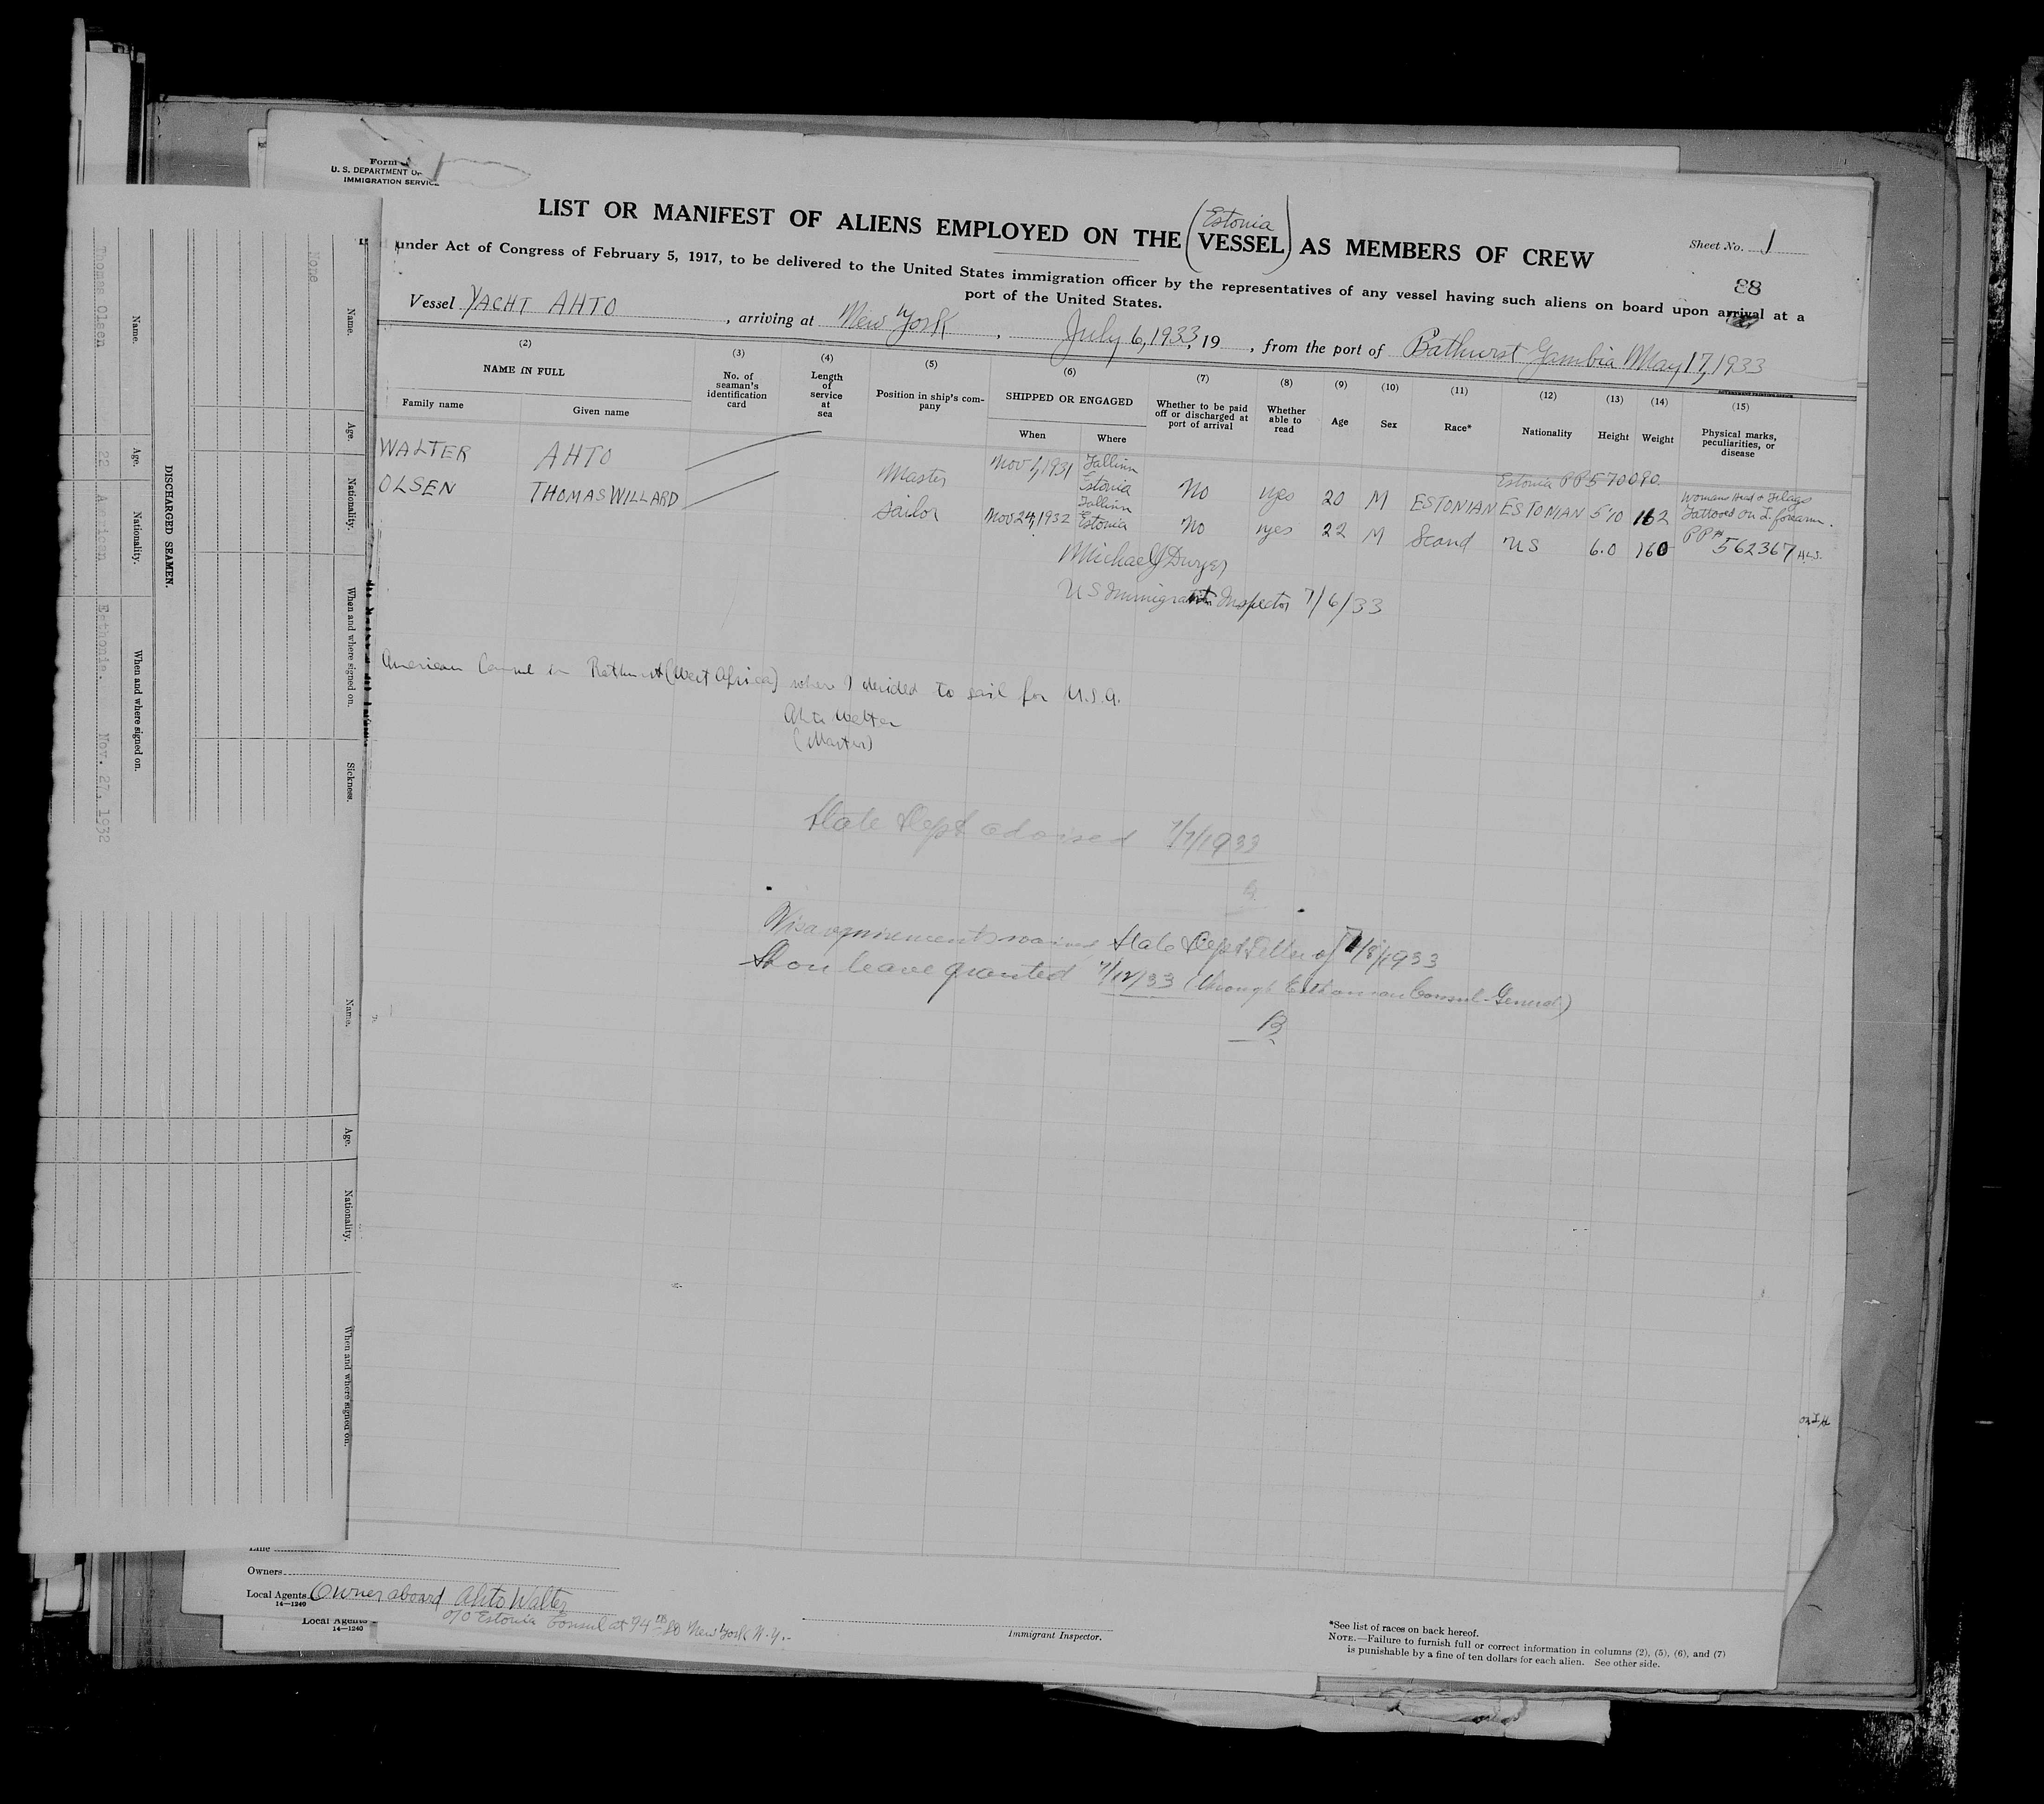 Form
U. S. DEPARTMENT OF
IMMIGRATION SERVICE
LIST OR MANIFEST OF ALIENS EMPLOYED ON THE (VESSEL) AS MEMBERS OF CREW
Estonia
Sheet No. 1
under Act of Congress of February 5, 1917, to be delivered to the United States immigration officer by the representatives of any vessel having such aliens on board upon arrival at a
port of the United States.
88
Vessel YACHT AHTO, arriving at New York, July 6, 1933, 19, from the port of Bathurst Gambia May 17, 1933
(2) (3) (4) (5) (6) (7) (8) (9) (10) (11) (12) (13) (14) (15)
NAME IN FULL
Family name
Given name
No. of seaman's identification card
Length of service at sea
Position in ship's company
SHIPPED OR ENGAGED
When
Where
Whether to be paid off or discharged at port of arrival
Whether able to read
Age
Sex
Race*
Nationality
Height
Weight
Physical marks, peculiarities, or disease
Estonia PP 570090
WALTER AHTO Master Nov 1, 1931 Tallinn Estonia No yes 20 M ESTONIAN ESTONIAN 5 10 162 Womans Head & Flags Tattooed on L. forearm.
OLSEN THOMAS WILLARD Sailor Nov 24, 1932 Tallinn Estonia No yes 22 M Scand US 6.0 160 PP # 562367
Michael J Dwyer
US Immigrant Inspector 7/6/33
American Consul in Bathurst (West Africa) when I decided to sail for U.S.A.
Ahto Walter
(Master)
State Dept advised 7/7/1933
B
Visa requirements waived State Dept letter of 7/8/1933
Shore leave granted 7/12/33 (through Esthonian Consul-General)
B
Line
Owners
Local Agents Owner aboard Ahto Walter
14—1240
c/o Estonia Consul at New York N.Y.
Local Agents
14—1240
Immigrant Inspector.
*See list of races on back hereof.
NOTE.—Failure to furnish full or correct information in columns (2), (5), (6), and (7)
is punishable by a fine of ten dollars for each alien. See other side.
None
Name. Age. Nationality. When and where signed on. Sickness.
DISCHARGED SEAMEN.
Name. Age. Nationality. When and where signed on.
Thomas Olsen 22 American Esthonia. Nov. 27, 1932
Name. Age. Nationality. When and where signed on.